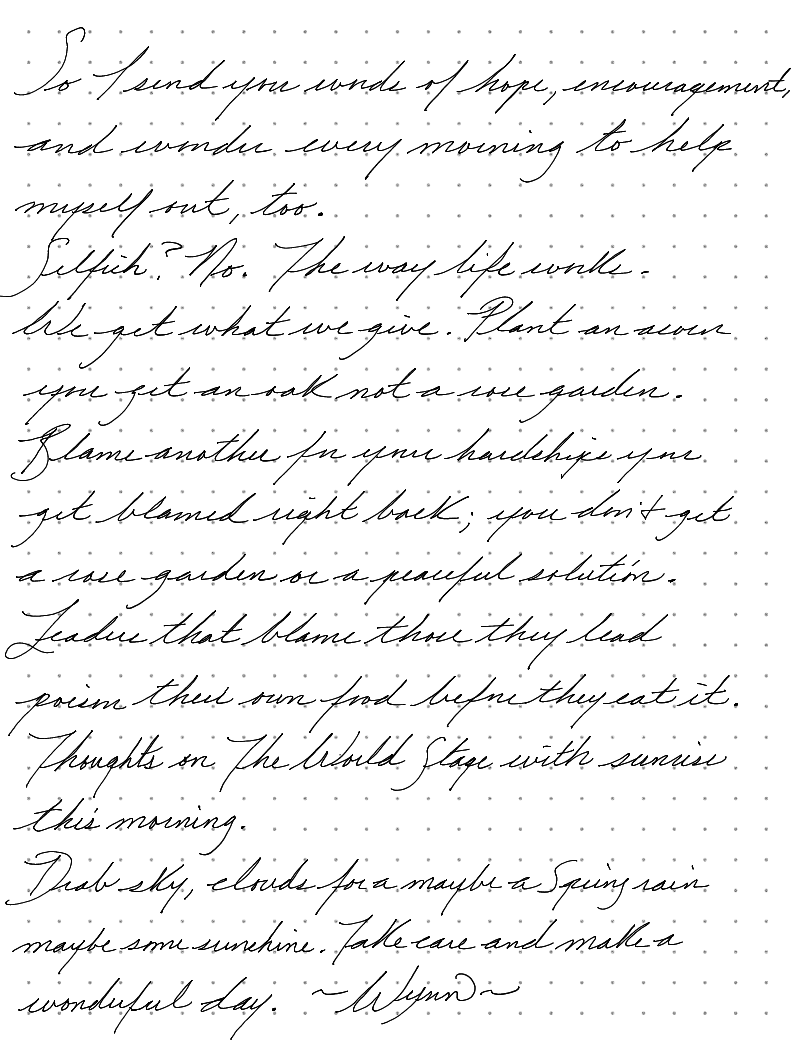 So I send you words of hope, encouragement,
and wonder every morning to help
myself out, too.
Selfish? No. The way life works.
We get what we give. Plant an acorn
you get an oak not a rose garden.
Blame another for your hardships you
get blamed right back; you don't get
a rose garden or a peaceful solution.
Leaders that blame those they lead
poison their own food before they eat it.
Thoughts on The World Stage with sunrise
this morning.
Drab sky, clouds for a maybe a Spring rain
maybe some sunshine. Take care and make a
wonderful day. ~Wynn~